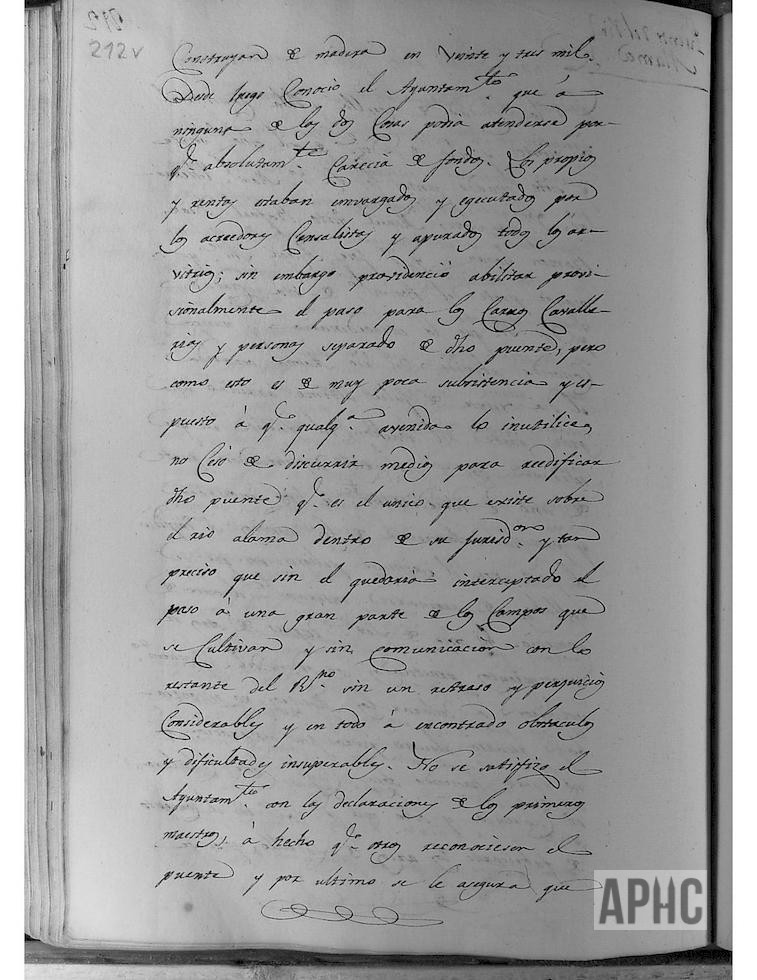 212v
Construyan de madera en veinte y tres mil.
Desde luego Conocio el Ayuntamto. que á
ninguna de las dos Cosas podia atenderse por-
qe. absolutamte. Carecia de fondos. Los propios
y rentas estaban envargados y egecutados por
los acreedores Censalistas y apurados todos los ar-
vitrios; sin embargo providenció abilitar provi-
sionalmente el paso para los Carros Cavalle-
rias y personas separado de dho puente, pero
como esto es de muy poca subsistencia y es-
puesto á qe. qualqa. avenida lo inutilice,
no Cesó de discurrir medios para reedificar
dho puente qe. es el unico que existe sobre
el rio alama dentro de su Jurisdon. y tan
preciso que sin el quedaria interceptado el
paso á una gran parte de los Campos que
se Cultivan y sin comunicacion con lo
restante del Rno. sin un retraso y perjuicios
Considerables y en todo á encontrado obstaculos
y dificultades insuperables. No se satisfizo el
Ayuntamto. con las declaraciones de los primeros
maestros, á hecho qe. otros reconociesen el
puente y por ultimo se le asegura que
APHC